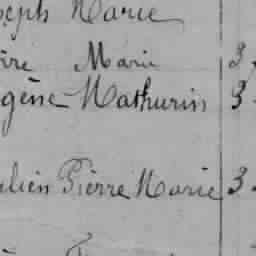 seph Marie
rre Marie 3
gène Mathurin 3
ulien Pierre Marie 3